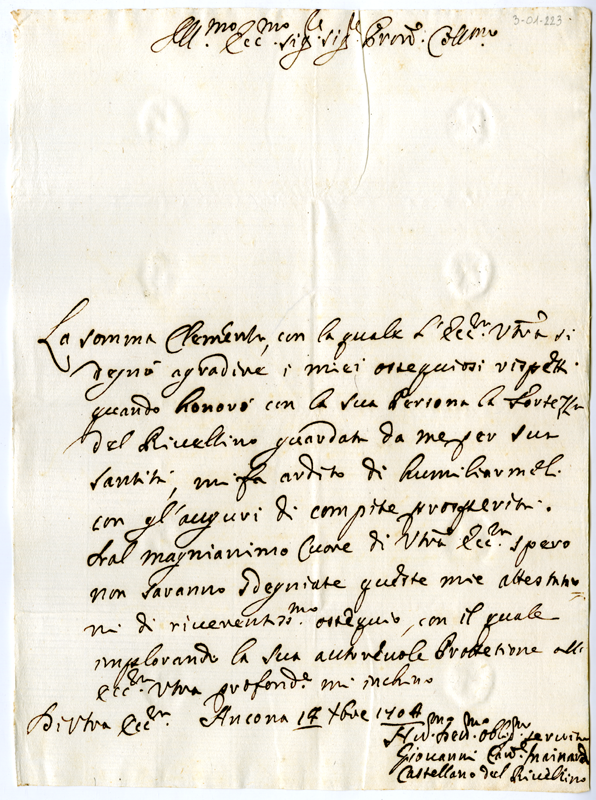 3-01-223
Ill.mo Ecc.mo Sig.re Sig.re Pron.e Coll.mo
La somma Clemenza, con la quale l'Ecc.za Vtra si
degnò agradire i miei ossequiosi rispetti
quando honorò con la sua Persona la Fortezza
del Rivellino guardata da me per sua
santità, mi fa ardito di humiliarmele
con gl'auguri di compite prosperità.
dal magnianimo Cuore di Vtra Ecc.za spero
non saranno sdegniate queste mie attestatio=
ni di riverentiss.mo ossequio, con il quale
implorando la sua autorevole Protetione all'
Ecc.za Vtra profond.e mi inchino
Di Vtra Ecc.za Ancona 14 Xbre 1704
Hu.mo Dev.mo Obblig.mo servito
Giovanni Cav.
Castellano del Rivellino